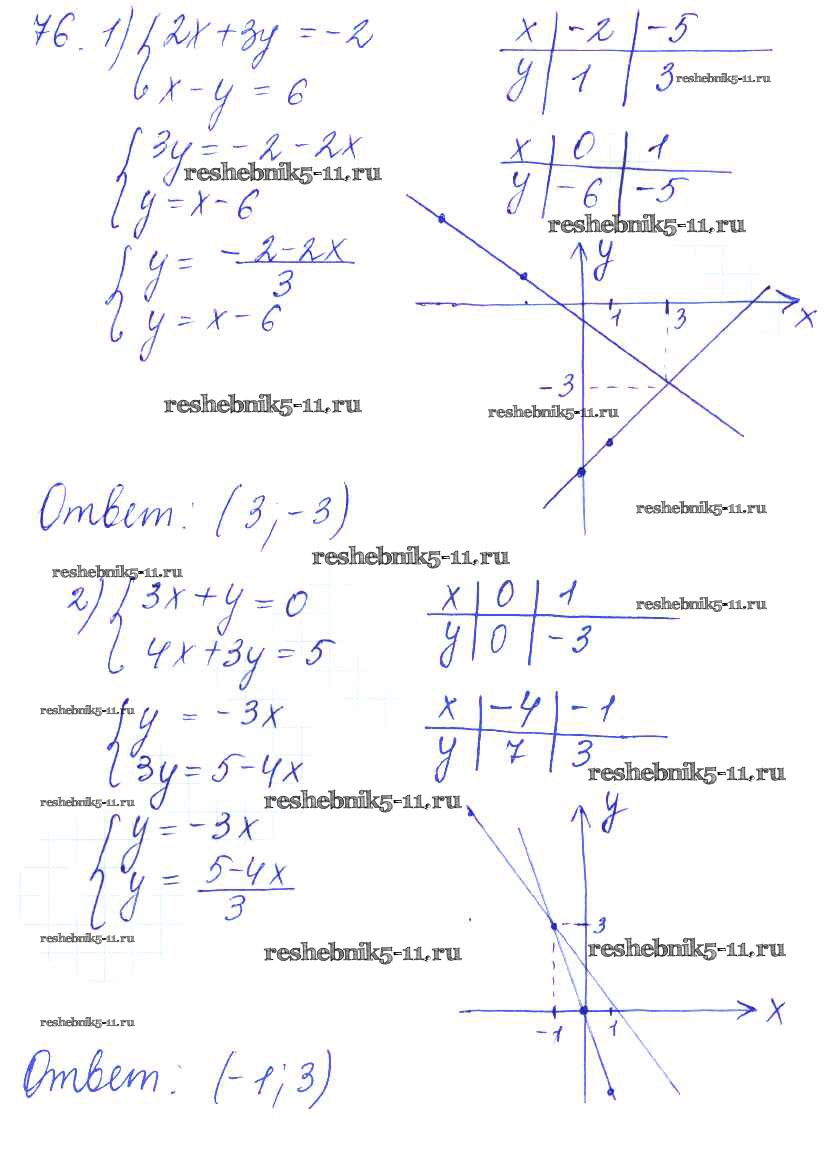 76. 1) { 2x + 3y = -2
x - y = 6
x | -2 | -5
y | 1 | 3
reshebnik5-11.ru
{ 3y = -2 - 2x
reshebnik5-11.ru
y = x - 6
x | 0 | 1
y | -6 | -5
reshebnik5-11.ru
{ y = (-2-2x)/3
y = x - 6
y
x
1
3
-3
reshebnik5-11.ru
reshebnik5-11.ru
Ответ: (3; -3)
reshebnik5-11.ru
reshebnik5-11.ru
reshebnik5-11.ru
2) { 3x + y = 0
4x + 3y = 5
x | 0 | 1
y | 0 | -3
reshebnik5-11.ru
reshebnik5-11.ru
{ y = -3x
3y = 5 - 4x
x | -4 | -1
y | 7 | 3
reshebnik5-11.ru
reshebnik5-11.ru
reshebnik5-11.ru
{ y = -3x
y = (5-4x)/3
y
3
x
-1
1
reshebnik5-11.ru
reshebnik5-11.ru
reshebnik5-11.ru
reshebnik5-11.ru
Ответ: (-1; 3)